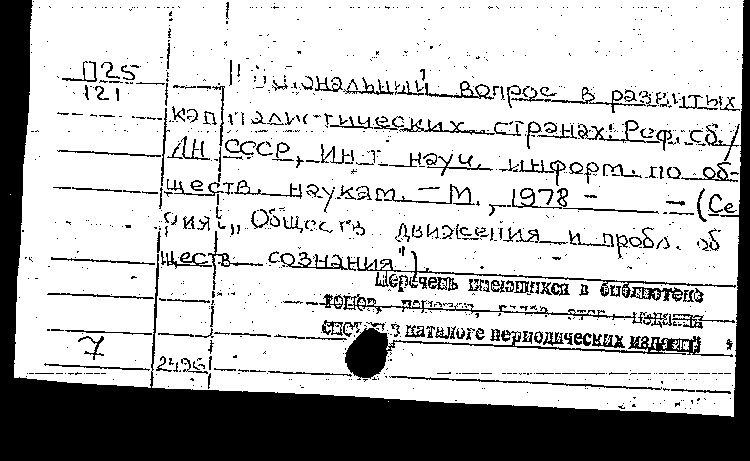 П25
121
вопрос в развитых
капиталистических странах: Реф. сб. /
АН СССР, Ин-т науч. информ. по об-
ществ. наукам. – М., 1978 –      – (Се
рия: „Обществ движения и пробл. об
ществ сознания").
Перечень имеющихся в библиотеке
томов,
смотри в каталоге периодических изданий
7
2496